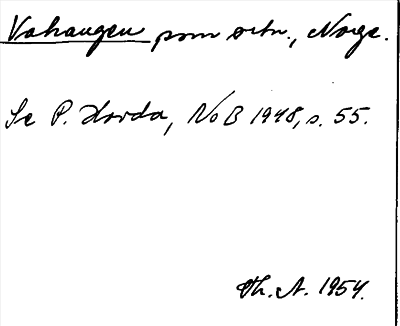 Vahaugen som ortn., Norge.
Se P. Hovda, NoB 1948, s. 55.
Th. A. 1954.